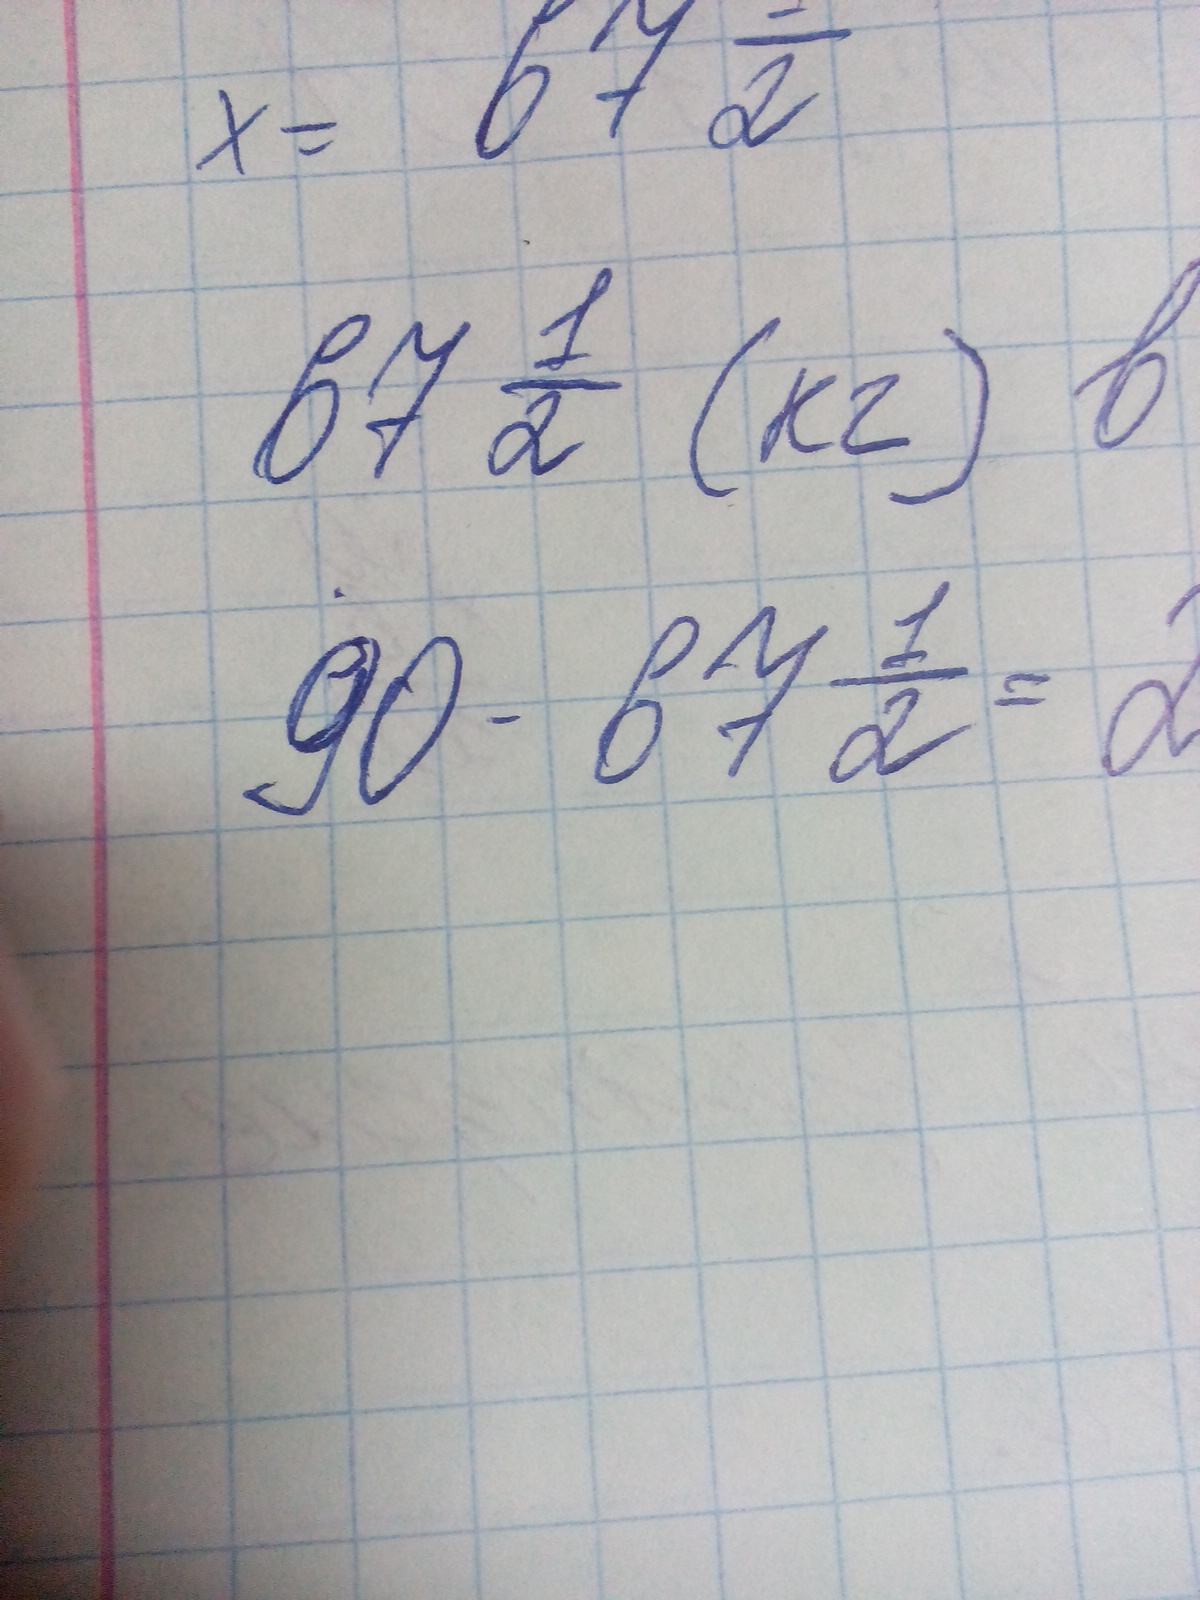 x = 67 1/2
67 1/2 (кг) в
90 - 67 1/2 = 2